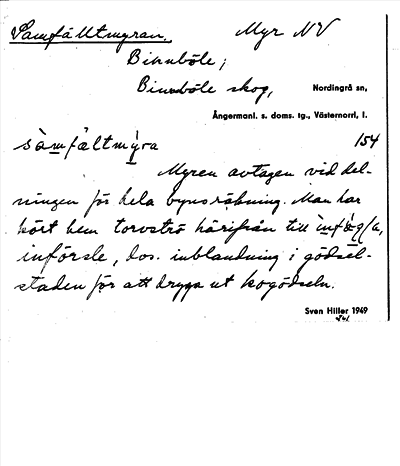 Samfälltmyran. Myr NV
Binnböle;
Binnböle skog, Nordingrå sn,
Ångermanl. s. doms. tg., Västernorrl. l.
sàmfältmy̱ra 154
Myren avtagen vid del-
ningen för hela byns räkning. Man har
kört hem torvströ härifrån till
införsle, dvs. inblandning i gödsel-
staden för att dryga ut kogödseln.
Sven Hiller 1949